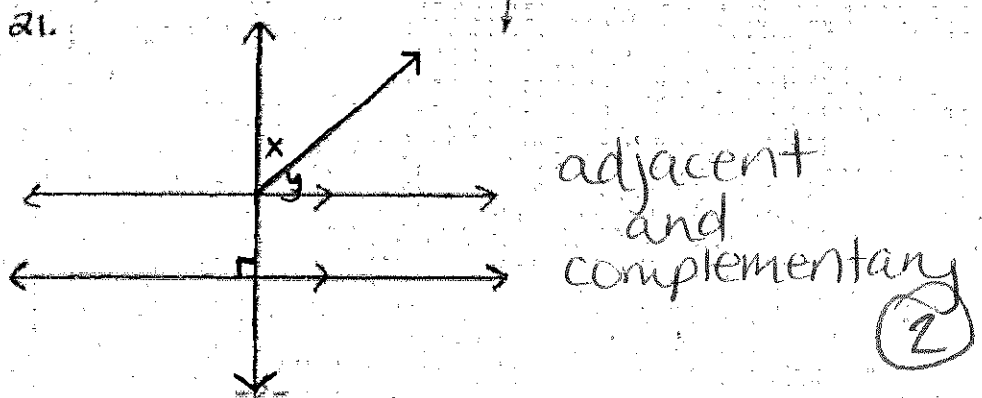 21.
x
y
adjacent
and
complementary
2